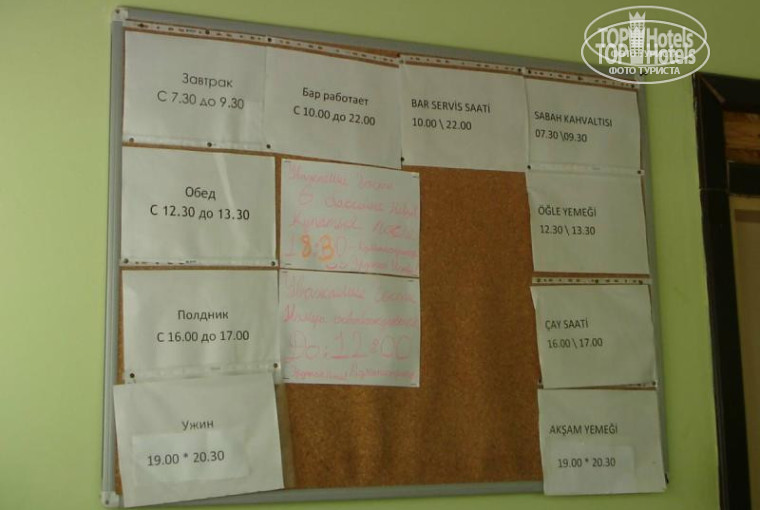 TOP Hotels
TOP Hotels
ФОТО ТУРИСТА
Завтрак
С 7.30 до 9.30
Бар работает
С 10.00 до 22.00
BAR SERVİS SAATİ
10.00 \ 22.00
SABAH KAHVALTISI
07.30 \09.30
Обед
С 12.30 до 13.30
Уважаемые Гости
в бассейне
после
18:30
ÖĞLE YEMEĞİ
12.30 \ 13.30
Полдник
С 16.00 до 17.00
Уважаемые Гости
До 12:00
ÇAY SAATİ
16.00 \ 17.00
Ужин
19.00 * 20.30
AKŞAM YEMEĞİ
19.00 * 20.30